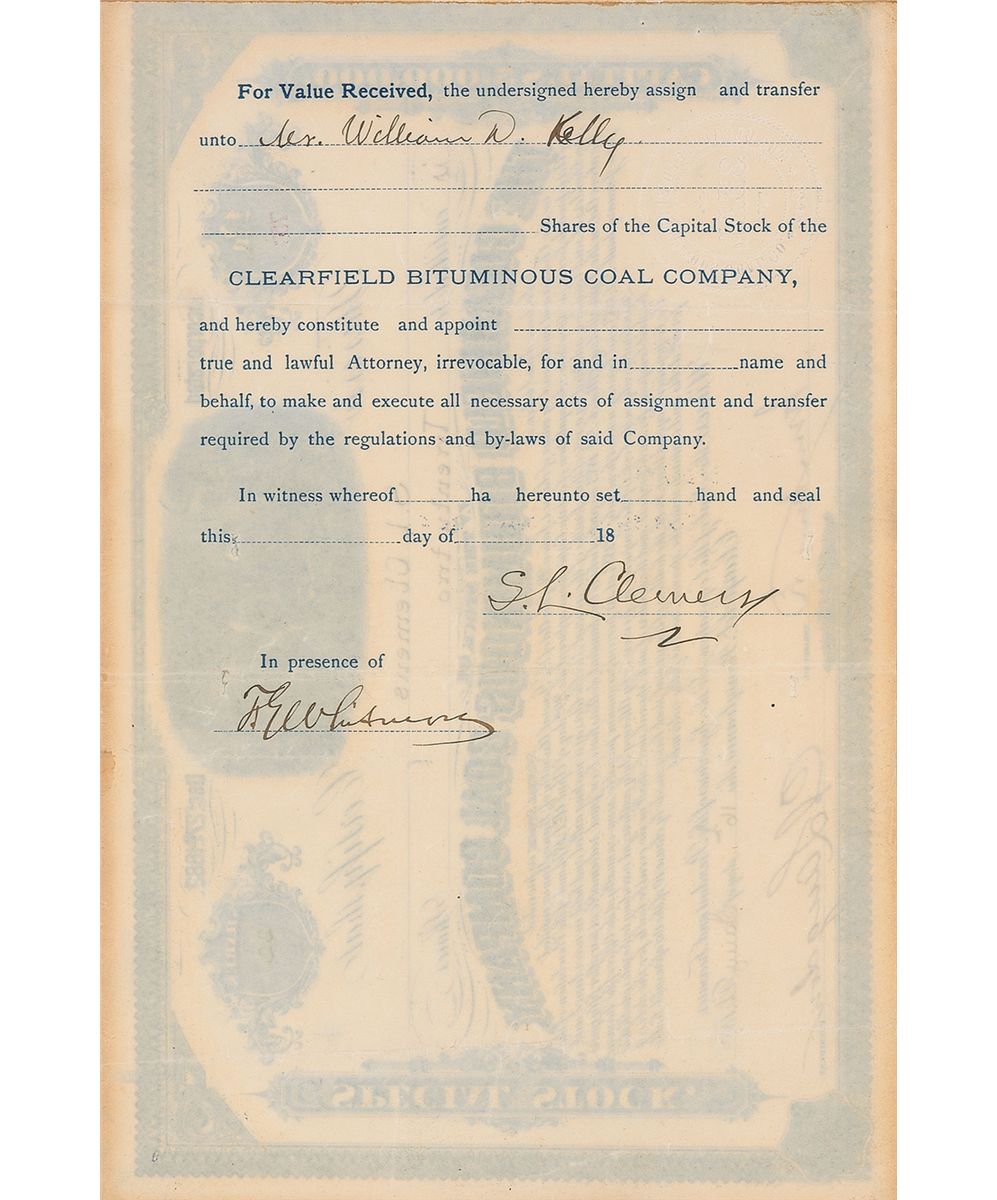 For Value Received, the undersigned hereby assign and transfer
unto Mr. William D. Kelly
Shares of the Capital Stock of the
CLEARFIELD BITUMINOUS COAL COMPANY,
and hereby constitute and appoint
true and lawful Attorney, irrevocable, for and in name and
behalf, to make and execute all necessary acts of assignment and transfer
required by the regulations and by-laws of said Company.
In witness whereof ha hereunto set hand and seal
this day of 18
S. L. Clemens
In presence of
F. G. Whitmore